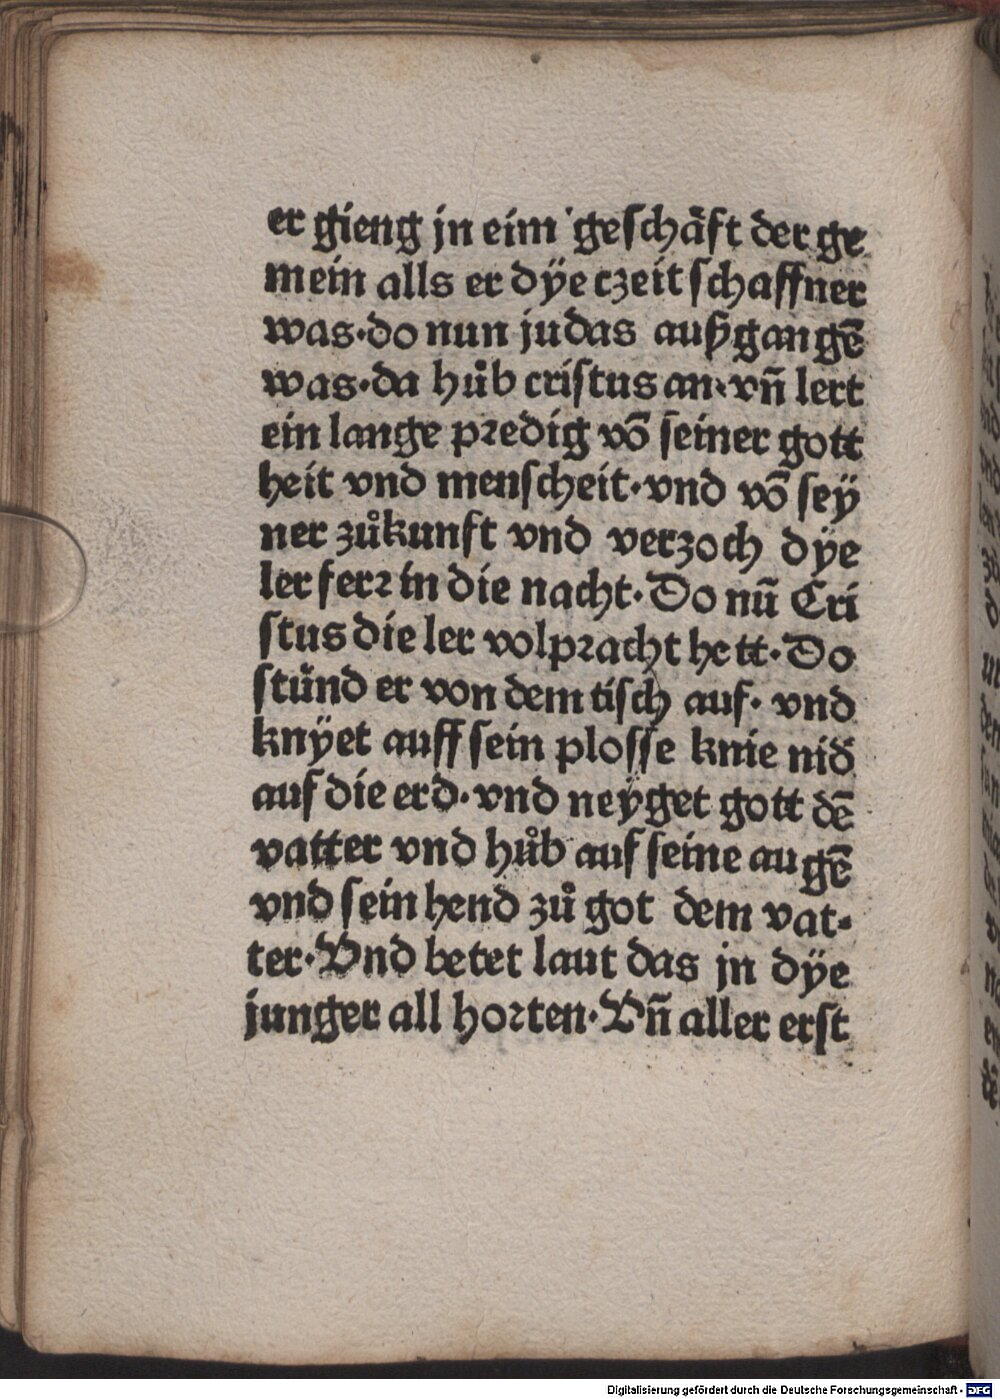 er gieng jn eim geſchäft der ge
mein alls er dÿe czeit ſchaffner
was·do nun judas außgangē
was·da hůb criſtus an·vn̄ lert
ein lange pꝛedig vō ſeiner gott
heit vnd menſcheit·vnd vō ſeÿ
ner zůkunft vnd verzoch dÿe
ler ferꝛ in die nacht·Do nū Cri
ſtus die ler volpꝛacht hett·Do
ſtůnd er von dem tiſch auf· vnd
knÿet auff ſein ploſſe knie nid̄
auf die erd·vnd neÿget gott dē
vatter vnd hůb auf ſeine augē
vnd ſein hend zů got dem vat⸗
ter·Vnd betet laut das jn dÿe
junger all hoꝛten·Vn̄ aller erſt
Digitalisierung gefördert durch die Deutsche Forschungsgemeinschaft - DFG